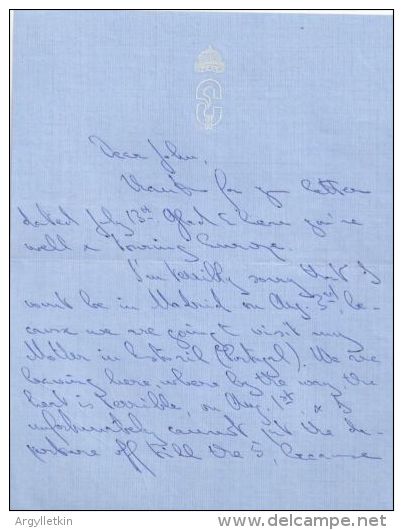 Dear John,
Thanks for yr letter
dated July 13th. Glad to hear you're
well & touring Europe.
I'm terribly sorry that I
wont be in Madrid on Aug 3rd, be-
cause we are going to visit my
Mother in Estoril (Portugal). We are
leaving here, where by the way the
heat is terrible, on Aug. 1st, & I
unfortunately cannot put the de-
parture off till the 5, because
© Argylletkin
www.delcampe.net